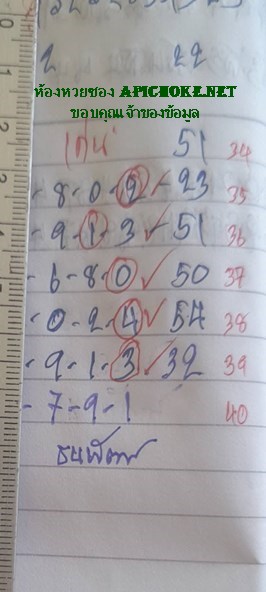 2 22
ห้องหวยซอง APICHOKE.NET
ขอบคุณเจ้าของข้อมูล
เด่น 51 34
- 8-0-9 - 23 35
- 9-1-3 ✓ 51 36
- 6-8-0 ✓ 50 37
- 0-2-4 ✓ 54 38
- 9-1-3 ✓ 32 39
- 7-9-1 40